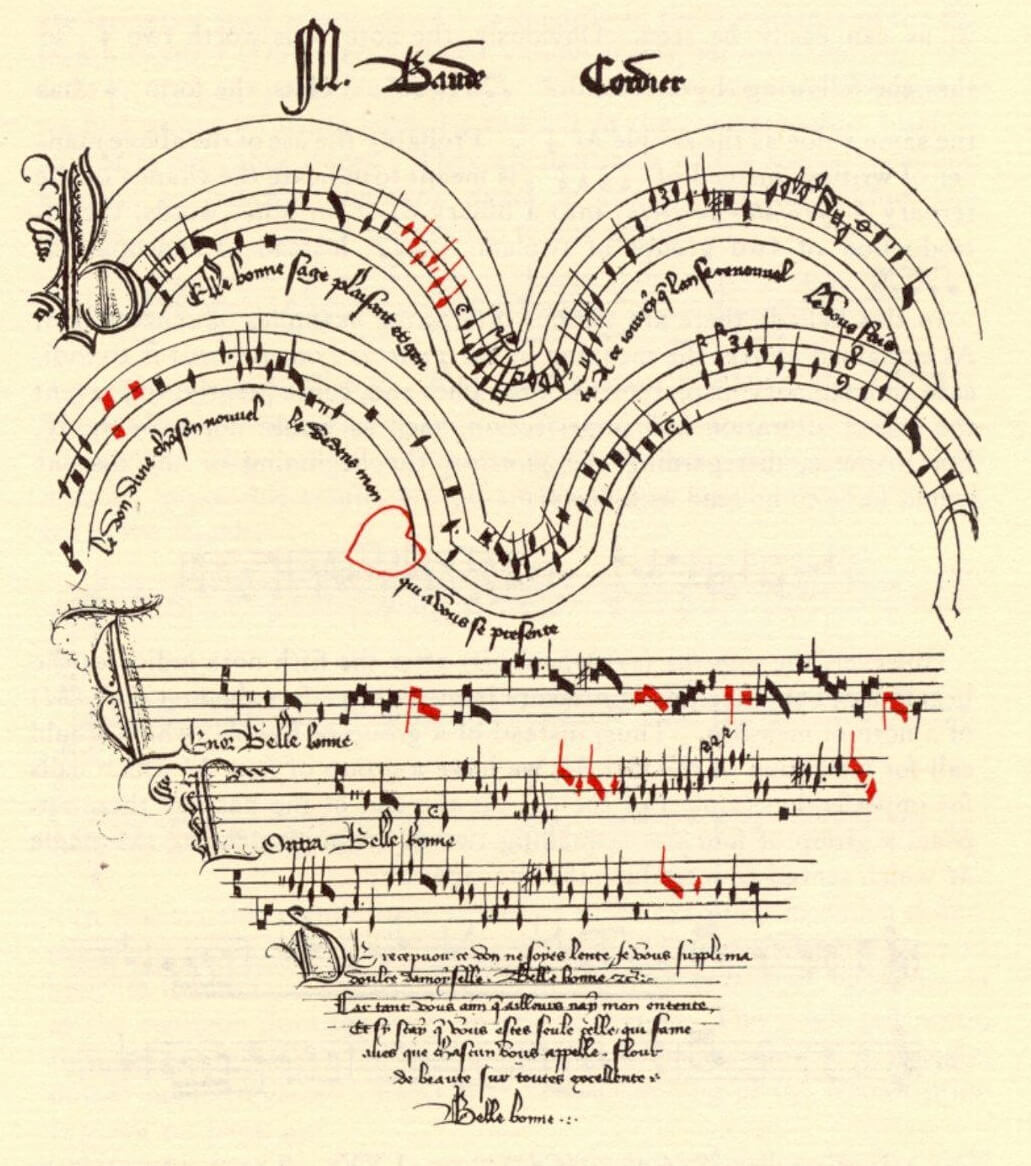 M. Baude Cordier
Belle bonne sage plaisant et gen
te A ce jour cy q̃ lan se renouvel
le Vous fais
le don dune chãson nouvel
le Dedens mon
qui a vous se presente
Tenor Belle bonne
Contra Belle bonne
De recepvoir ce don ne soyes lente, Je vous suppli ma
doulce damoyselle. Belle bonne. ⁊c̃.
Car tant vous aim q̃ ailleurs nay mon entente,
Et sy scay q̃ vous estes seule celle qui fame
aves que chascun vous appelle. flour
de beaute sur toutes excellente.
Belle bonne.